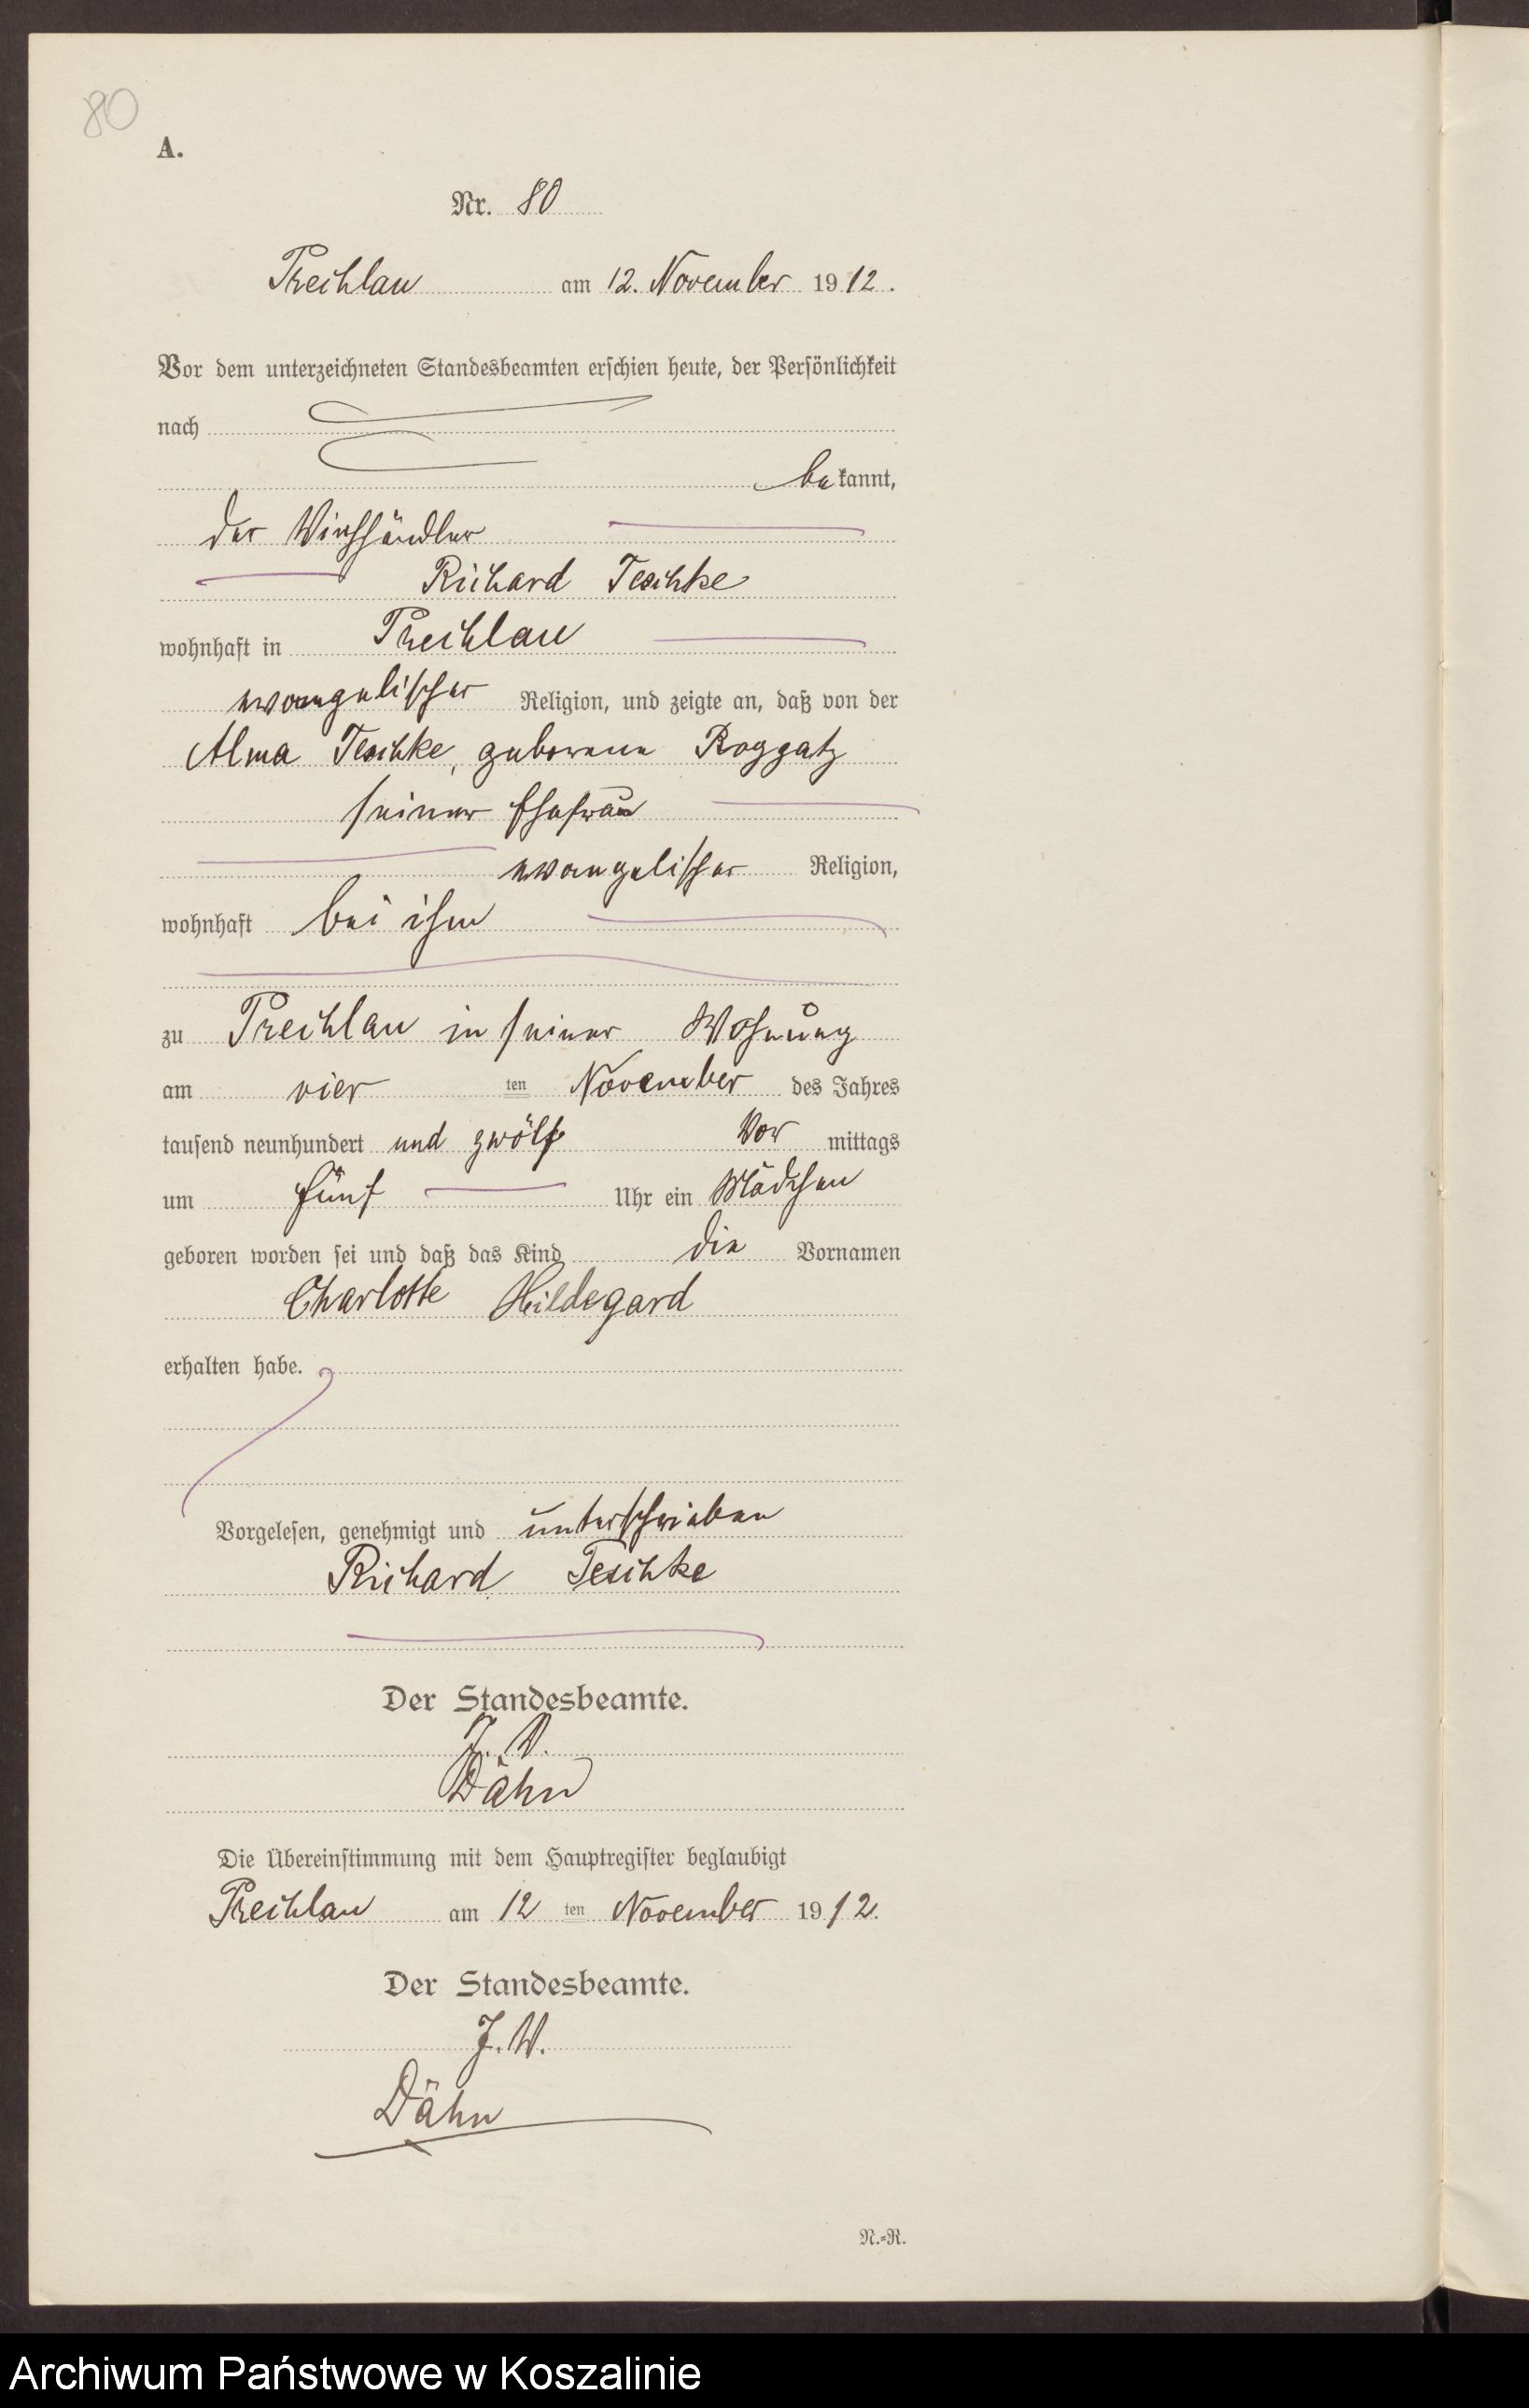 80
A.
Nr. 80
Prechlau am 12. November 1912.
Vor dem unterzeichneten Standesbeamten erschien heute, der Persönlichkeit
nach
bekannt,
der Viehhändler
Richard Teschke
wohnhaft in Prechlau
evangelischer Religion, und zeigte an, daß von der
Alma Teschke, geborene Roggatz
seiner Ehefrau
evangelischer Religion,
wohnhaft bei ihm
zu Prechlau in seiner Wohnung
am vier ten November des Jahres
tausend neunhundert und zwölf Vor mittags
um fünf Uhr ein Mädchen
geboren worden sei und daß das Kind die Vornamen
Charlotte Hildegard
erhalten habe.
Vorgelesen, genehmigt und unterschrieben
Richard Teschke
Der Standesbeamte.
J. V.
Dähn
Die Übereinstimmung mit dem Hauptregister beglaubigt
Prechlau am 12 ten November 1912.
Der Standesbeamte.
J. V.
Dähn
N.=R.
Archiwum Państwowe w Koszalinie